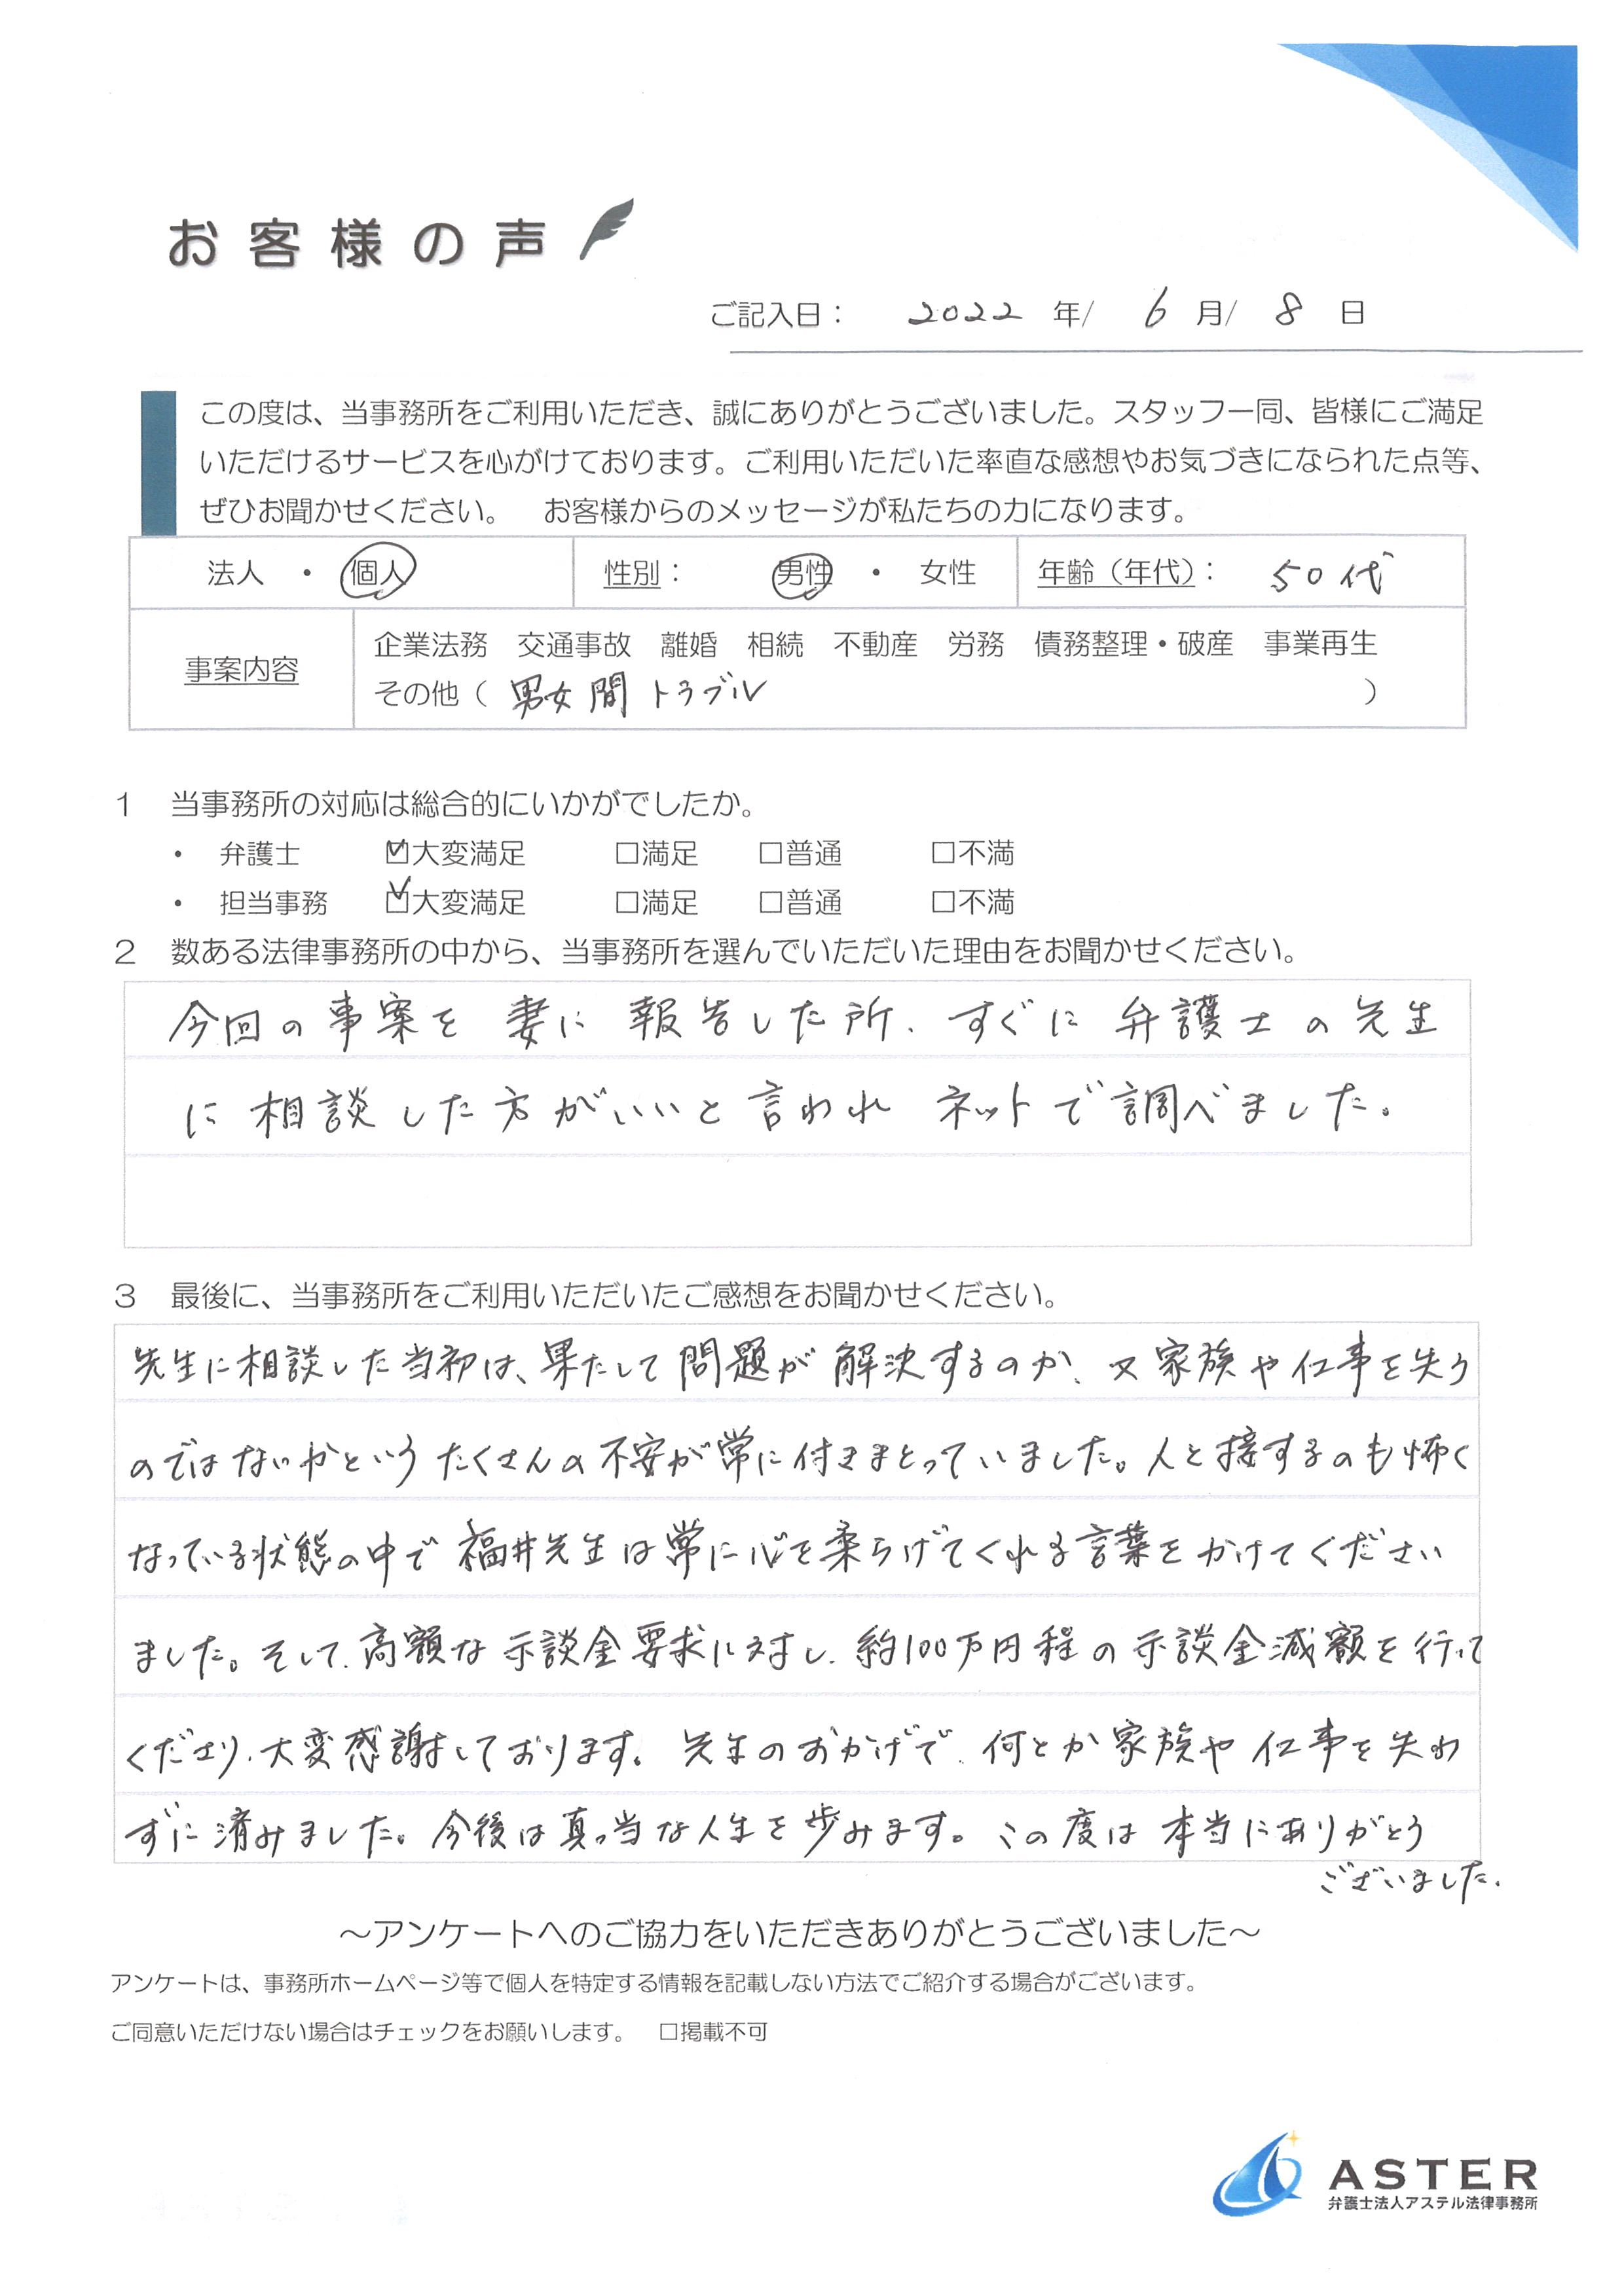 お客様の声
ご記入日： 2022 年/ 6 月/ 8 日
この度は、当事務所をご利用いただき、誠にありがとうございました。スタッフ一同、皆様にご満足
いただけるサービスを心がけております。ご利用いただいた率直な感想やお気づきになられた点等、
ぜひお聞かせください。 お客様からのメッセージが私たちの力になります。
法人 ・ 個人 性別： 男性 ・ 女性 年齢（年代）： 50代
事案内容 企業法務 交通事故 離婚 相続 不動産 労務 債務整理・破産 事業再生
その他（ 男女間トラブル ）
1 当事務所の対応は総合的にいかがでしたか。
・ 弁護士 ☑大変満足 □満足 □普通 □不満
・ 担当事務 ☑大変満足 □満足 □普通 □不満
2 数ある法律事務所の中から、当事務所を選んでいただいた理由をお聞かせください。
今回の事案を妻に報告した所、すぐに弁護士の先生
に相談した方がいいと言われ ネットで調べました。
3 最後に、当事務所をご利用いただいたご感想をお聞かせください。
先生に相談した当初は、果たして問題が解決するのか、又家族や仕事を失う
のではないかというたくさんの不安が常に付きまとっていました。人と接するのも怖く
なっている状態の中で福井先生は常に心を柔らげてくれる言葉をかけてください
ました。そして、高額な示談金要求に対し、約100万円程の示談金減額を行って
くださり、大変感謝しております。先生のおかげで、何とか家族や仕事を失わ
ずに済みました。今後は真っ当な人生を歩みます。この度は本当にありがとう
ございました。
～アンケートへのご協力をいただきありがとうございました～
アンケートは、事務所ホームページ等で個人を特定する情報を記載しない方法でご紹介する場合がございます。
ご同意いただけない場合はチェックをお願いします。 □掲載不可
ASTER
弁護士法人アステル法律事務所